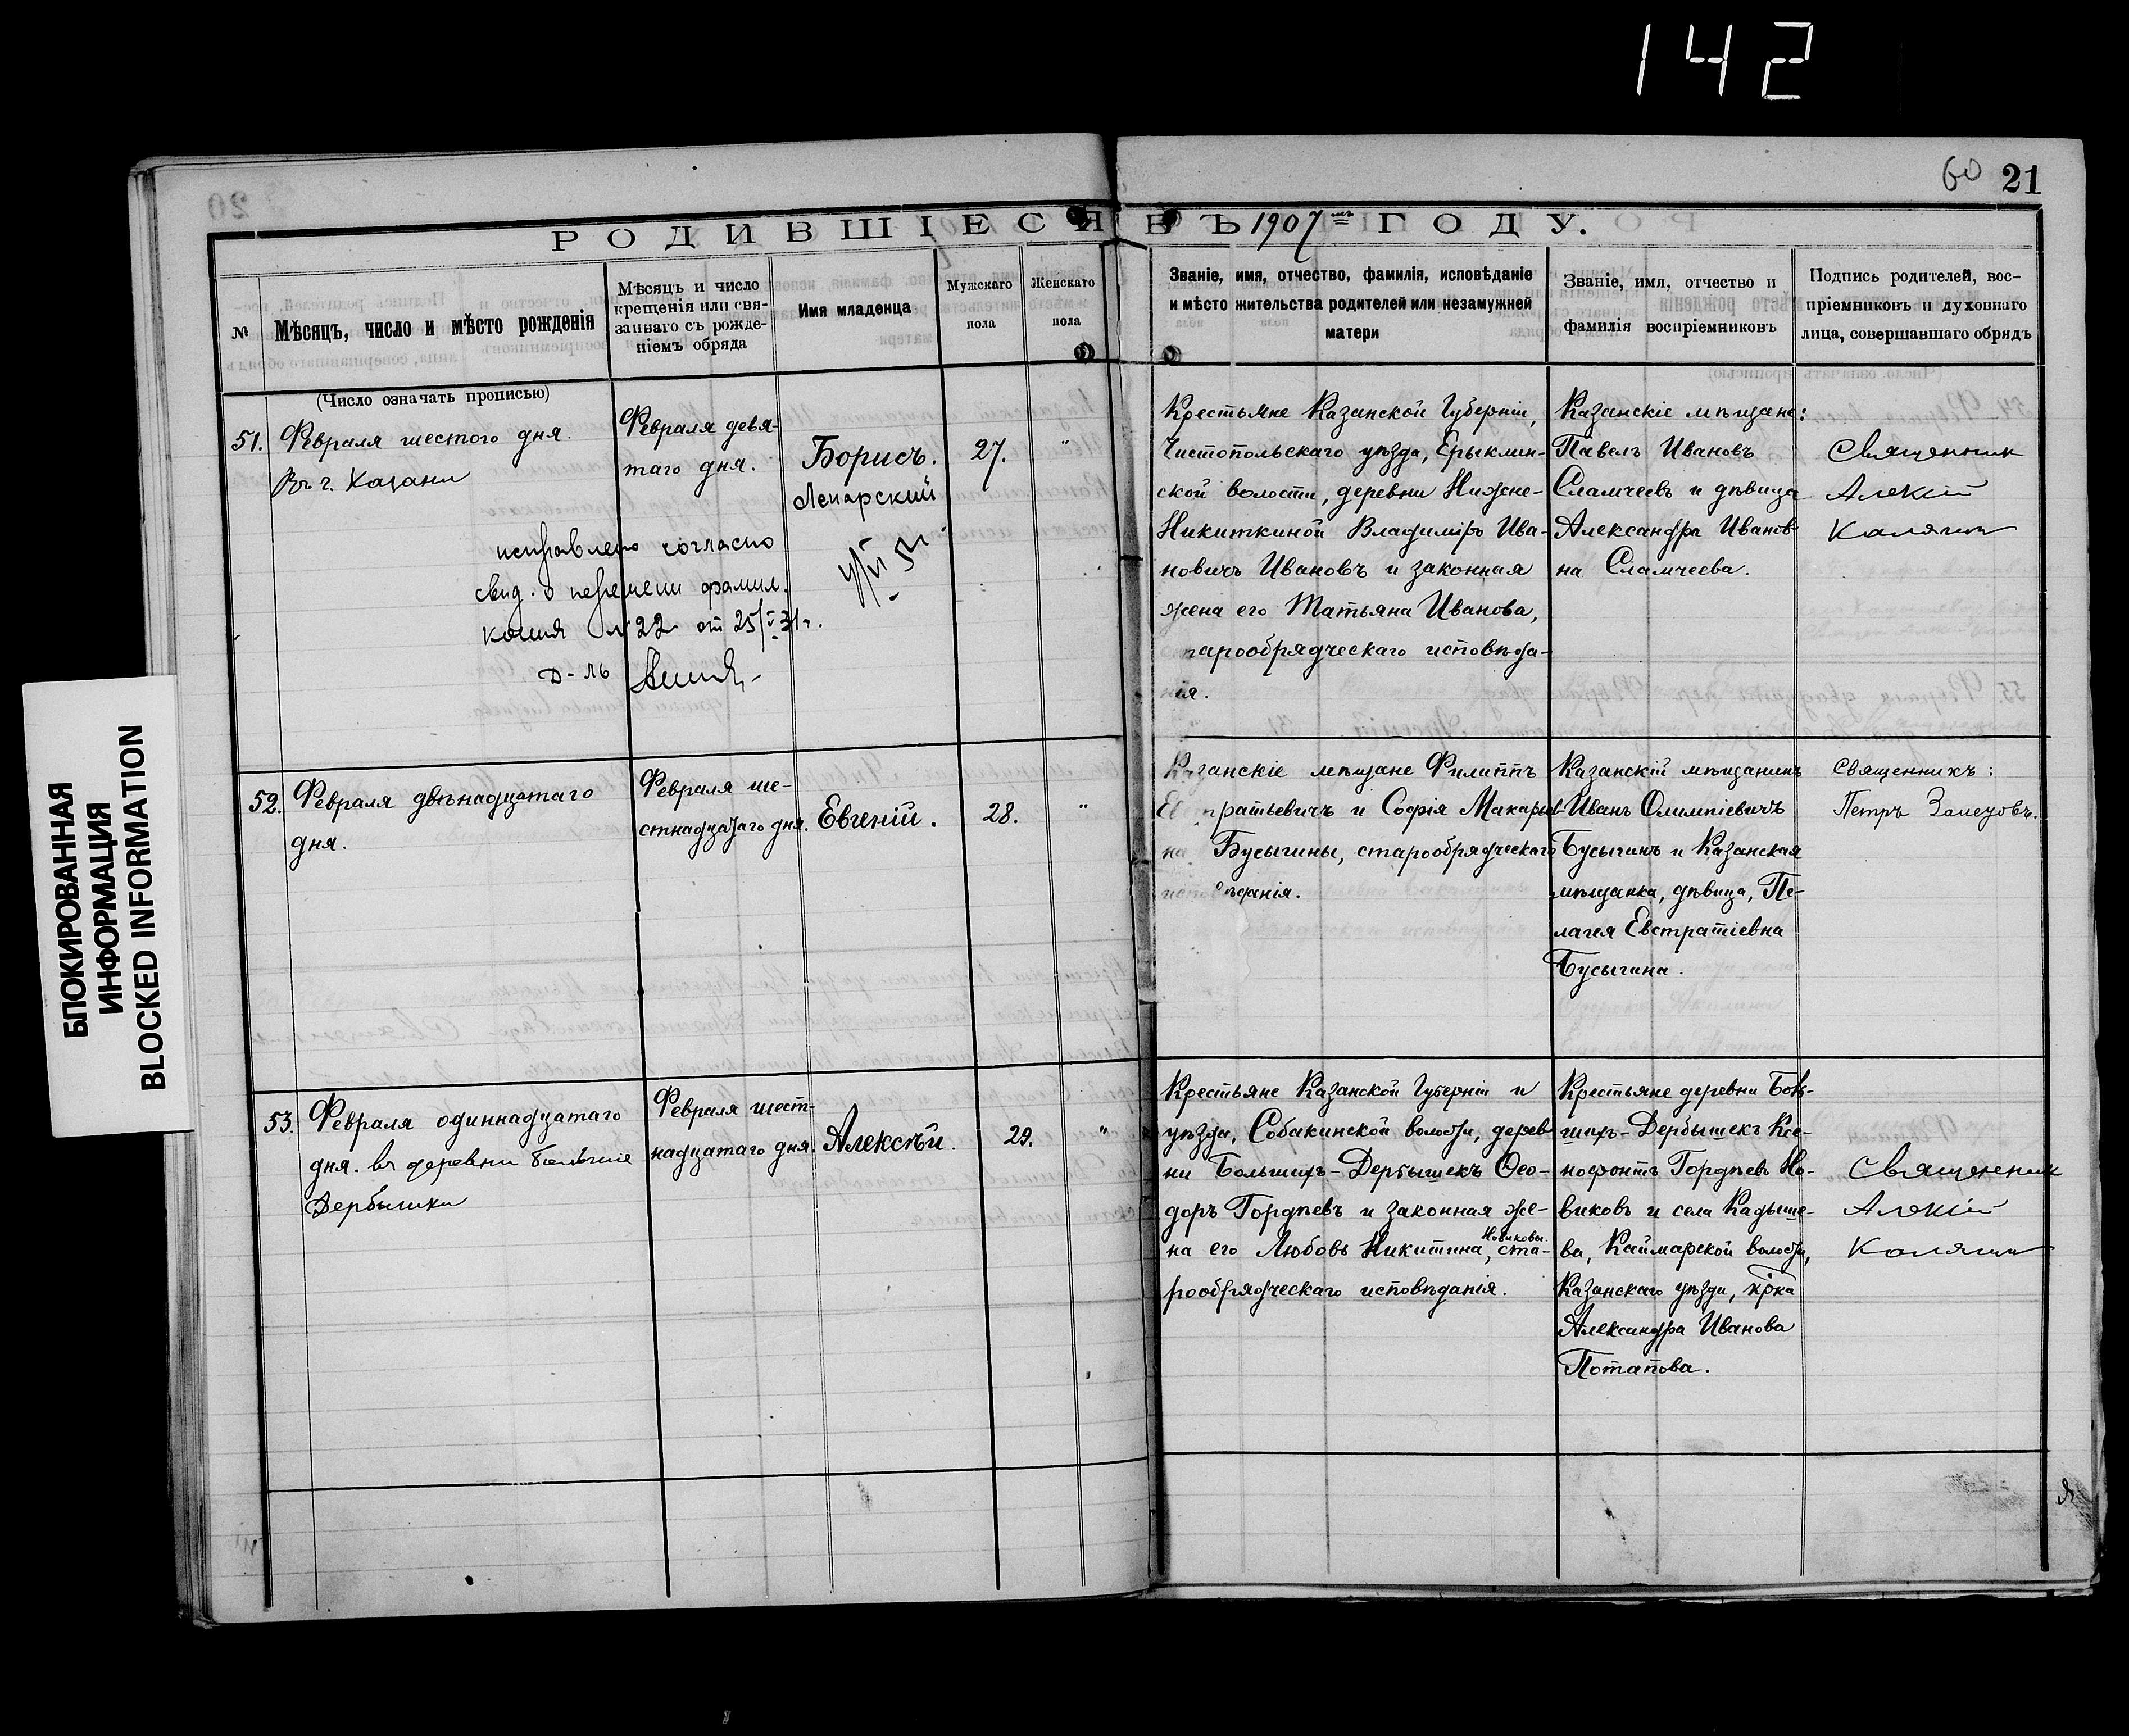 142
60 21
РОДИВШІЕСЯ ВЪ 1907 мъ ГОДУ.
№
Мѣсяцъ, число и мѣсто рожденія
Мѣсяцъ и число
крещенія или свя-
заннаго съ рожде-
ніемъ обряда
Имя младенца
Мужскаго
пола
Женскаго
пола
Званіе, имя, отчество, фамилія, исповѣданіе
и мѣсто жительства родителей или незамужней
матери
Званіе, имя, отчество и
фамилія воспріемниковъ
Подпись родителей, вос-
пріемниковъ и духовнаго
лица, совершавшаго обрядъ
(Число означать прописью)
51.
Февраля шестого дня.
Въ г. Казани
Февраля девя-
таго дня.
Борисъ.
Ленарский
27.
"
исправлено согласно
свид. о перемени фамил.
копия № 22 от 25/V 31 г.
д-ль
Крестьяне Казанской Губерніи,
Чистопольскаго уѣзда, Ерыклин-
ской волости, деревни Нижне-
Никиткиной Владиміръ Ива-
новичъ Ивановъ и законная
жена его Татьяна Иванова,
старообрядческаго исповѣда-
нія.
Казанскіе мѣщане:
Павелъ Ивановъ
Сламчеевъ и дѣвица
Александра Иванов-
на Сламчеева.
Священник
Алексій
Калягин
52.
Февраля двѣнадцатаго
дня.
Февраля ше-
стнадцатаго дня.
Евгеній.
28.
"
Казанскіе мѣщане Филиппъ
Евстратьевичъ и Софія Макарьев-
на Бусыгины, старообрядческаго
исповѣданія.
Казанскій мѣщанинъ
Иванъ Олимпіевичъ
Бусыгинъ и Казанская
мѣщанка, дѣвица, Пе-
лагея Евстратіевна
Бусыгина.
Священникъ:
Петръ
53.
Февраля одиннадцатаго
дня. въ деревни Большие
Дербышки
Февраля шест-
надцатаго дня.
Алексѣй.
29.
"
Крестьяне Казанской Губерніи и
уѣзда, Собакинской волости, дерев-
ни Большихъ-Дербышекъ Ѳео-
доръ Гордѣевъ и законная же-
на его Любовь Никитина, Новиковы. ста-
рообрядческаго исповѣданія.
Крестьяне деревни Боль-
шихъ-Дербышекъ Ксе-
нофонтъ Гордѣевъ Но-
виковъ и села Кадыше-
ва, Каймарской волости,
Казанскаго уѣзда, кр̃ка
Александра Иванова
Потапова.
Священник
Алексій
Калягин
БЛОКИРОВАННАЯ
ИНФОРМАЦИЯ
BLOCKED INFORMATION